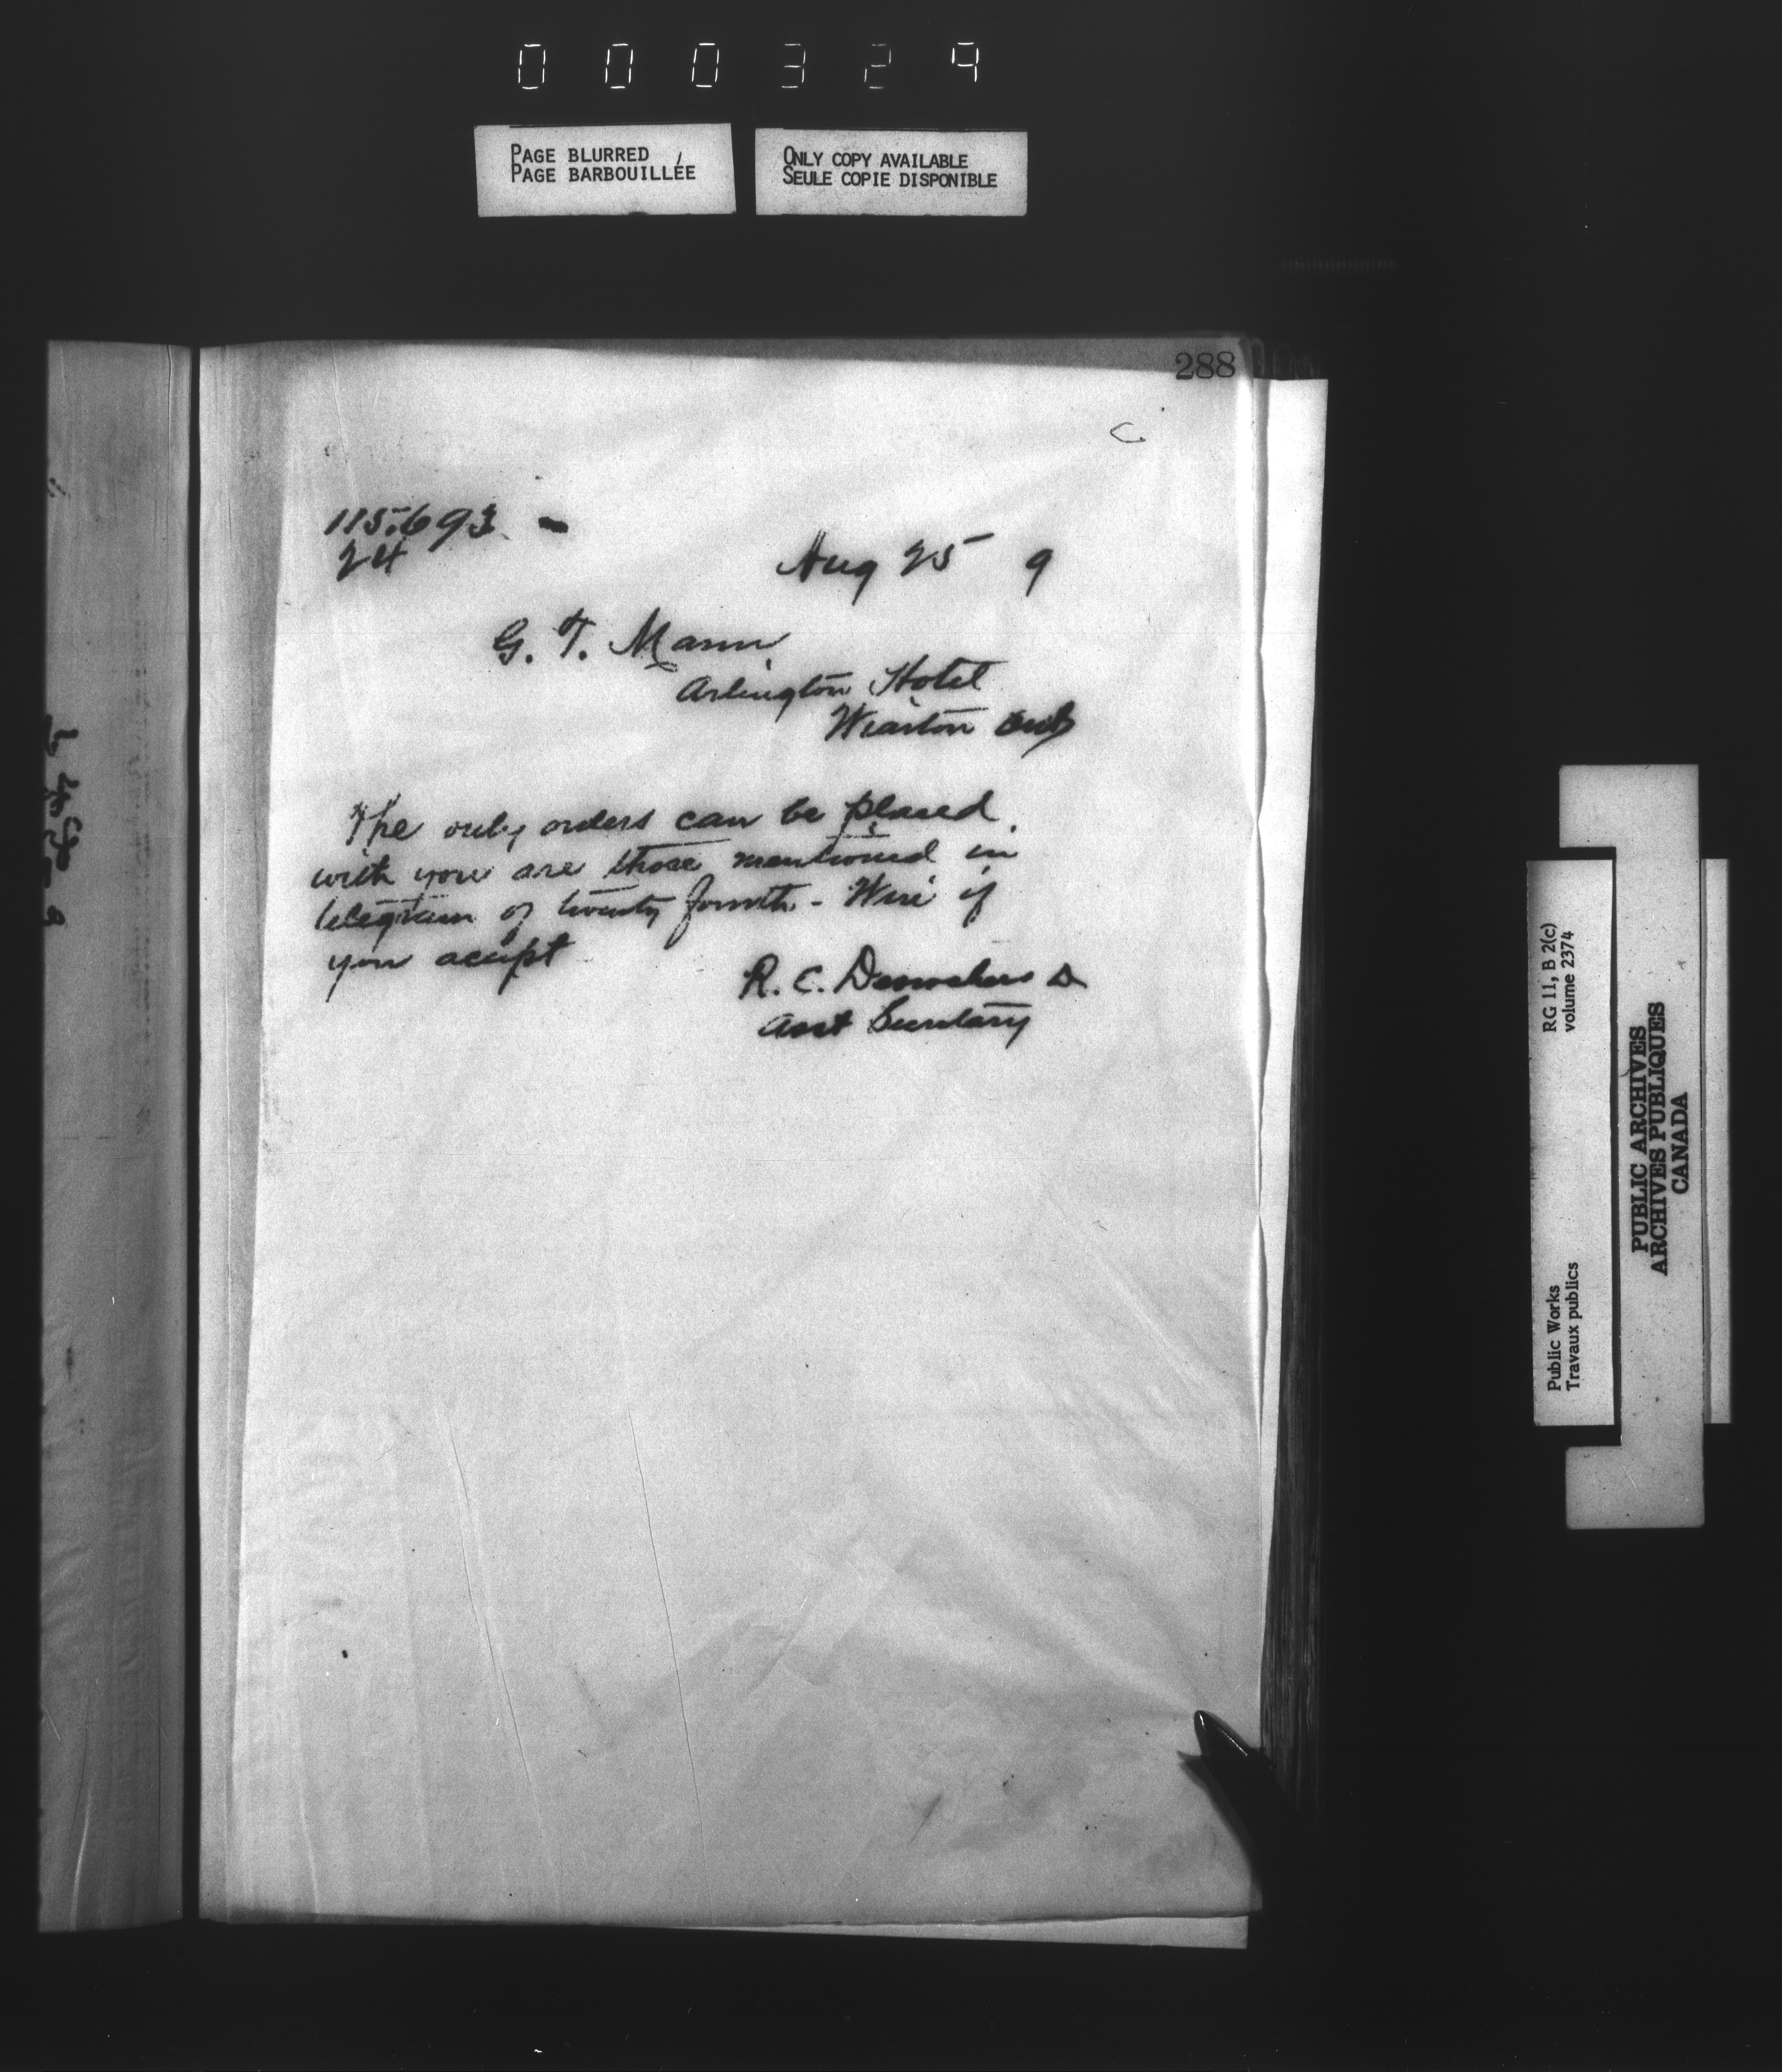 000329
PAGE BLURRED
PAGE BARBOUILLÉE
ONLY COPY AVAILABLE
SEULE COPIE DISPONIBLE
288
C
115.693 -
24
Aug 25 9
G. T. Mann
Arlington Hotel
Wiarton Ont
The only orders can be placed
with you are those mentioned in
telegram of twenty fourth - Wire if
you accept
R. C. Desrochers D
Asst Secretary
RG 11, B 2(c)
volume 2374
Public Works
Travaux publics
PUBLIC ARCHIVES
ARCHIVES PUBLIQUES
CANADA